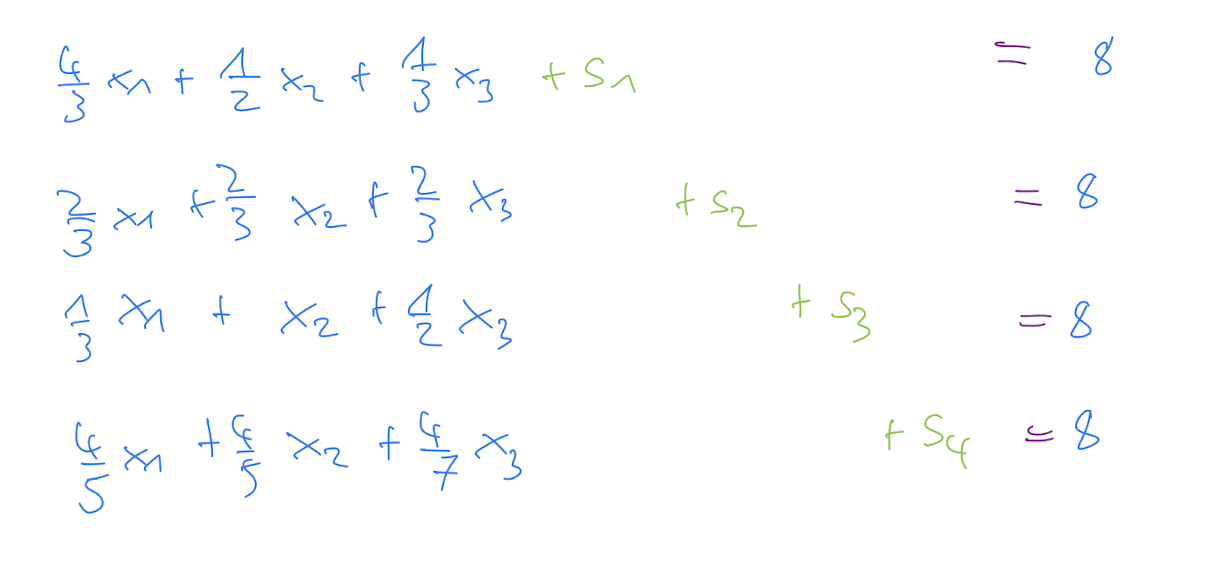 4/3 x1 + 1/2 x2 + 1/3 x3 + S1 = 8
2/3 x1 + 2/3 x2 + 2/3 x3 + S2 = 8
1/3 x1 + x2 + 1/2 x3 + S3 = 8
4/5 x1 + 4/5 x2 + 4/7 x3 + S4 = 8